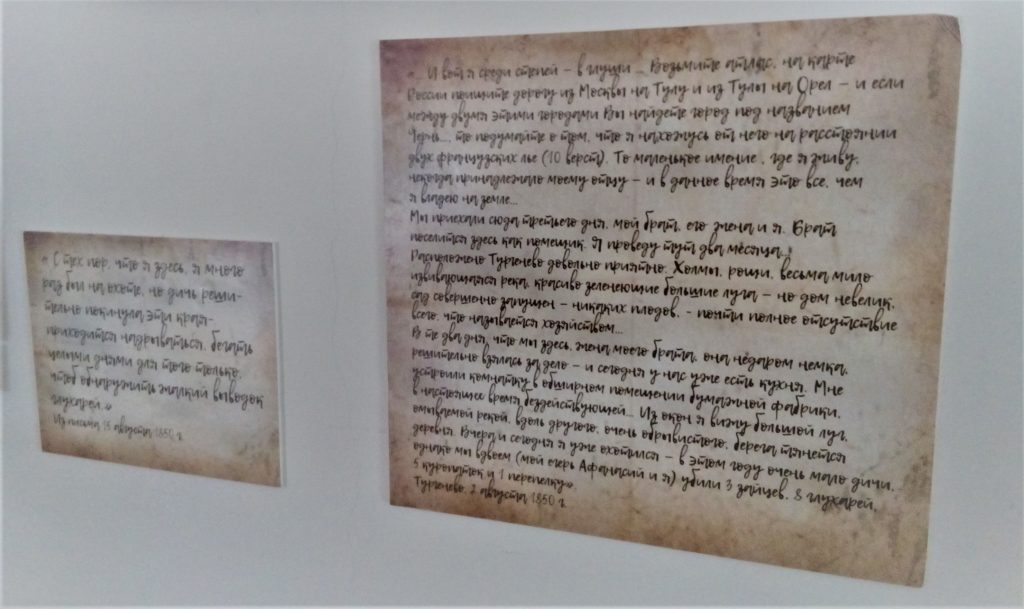 « С тех пор, что я здесь, я много
раз был на охоте, но дичь реши-
тельно покинула эти края-
приходится надрываться, бегать
целыми днями для того только,
чтоб обнаружить жалкий выводок
глухарей.»
Из письма 18 августа 1850 г.
«... И вот я среди степей – в глуши ... Возьмите атлас, на карте
России поищите дорогу из Москвы на Тулу и из Тулы на Орел – и если
между двумя этими городами Вы найдете город под названием
Чернь..., то подумайте о том, что я нахожусь от него на расстоянии
двух французских лье (10 верст). То маленькое имение , где я живу,
некогда принадлежало моему отцу – и в данное время это все, чем
я владею на земле...
Мы приехали сюда третьего дня, мой брат, его жена и я. Брат
поселится здесь как помещик. Я проведу тут два месяца.
Расположено Тургенево довольно приятно. Холмы, рощи, весьма мило
извивающаяся река, красиво зеленеющие большие луга – но дом невелик,
сад совершенно запущен – никаких плодов, - почти полное отсутствие
всего, что называется хозяйством...
В те два дня, что мы здесь, жена моего брата, она недаром немка,
решительно взялась за дело – и сегодня у нас уже есть кухня. Мне
устроили комнатку в обширном помещении бумажной фабрики,
в настоящее время бездействующей... Из окон я вижу большой луг,
омываемой рекой, вдоль другого, очень обрывистого, берега тянется
деревня. Вчера и сегодня я уже охотился – в этом году очень мало дичи,
однако мы вдвоем (мой егерь Афанасий и я) убили 3 зайцев, 8 глухарей,
5 куропаток и 1 перепелку».
Тургенево, 2 августа 1850 г.